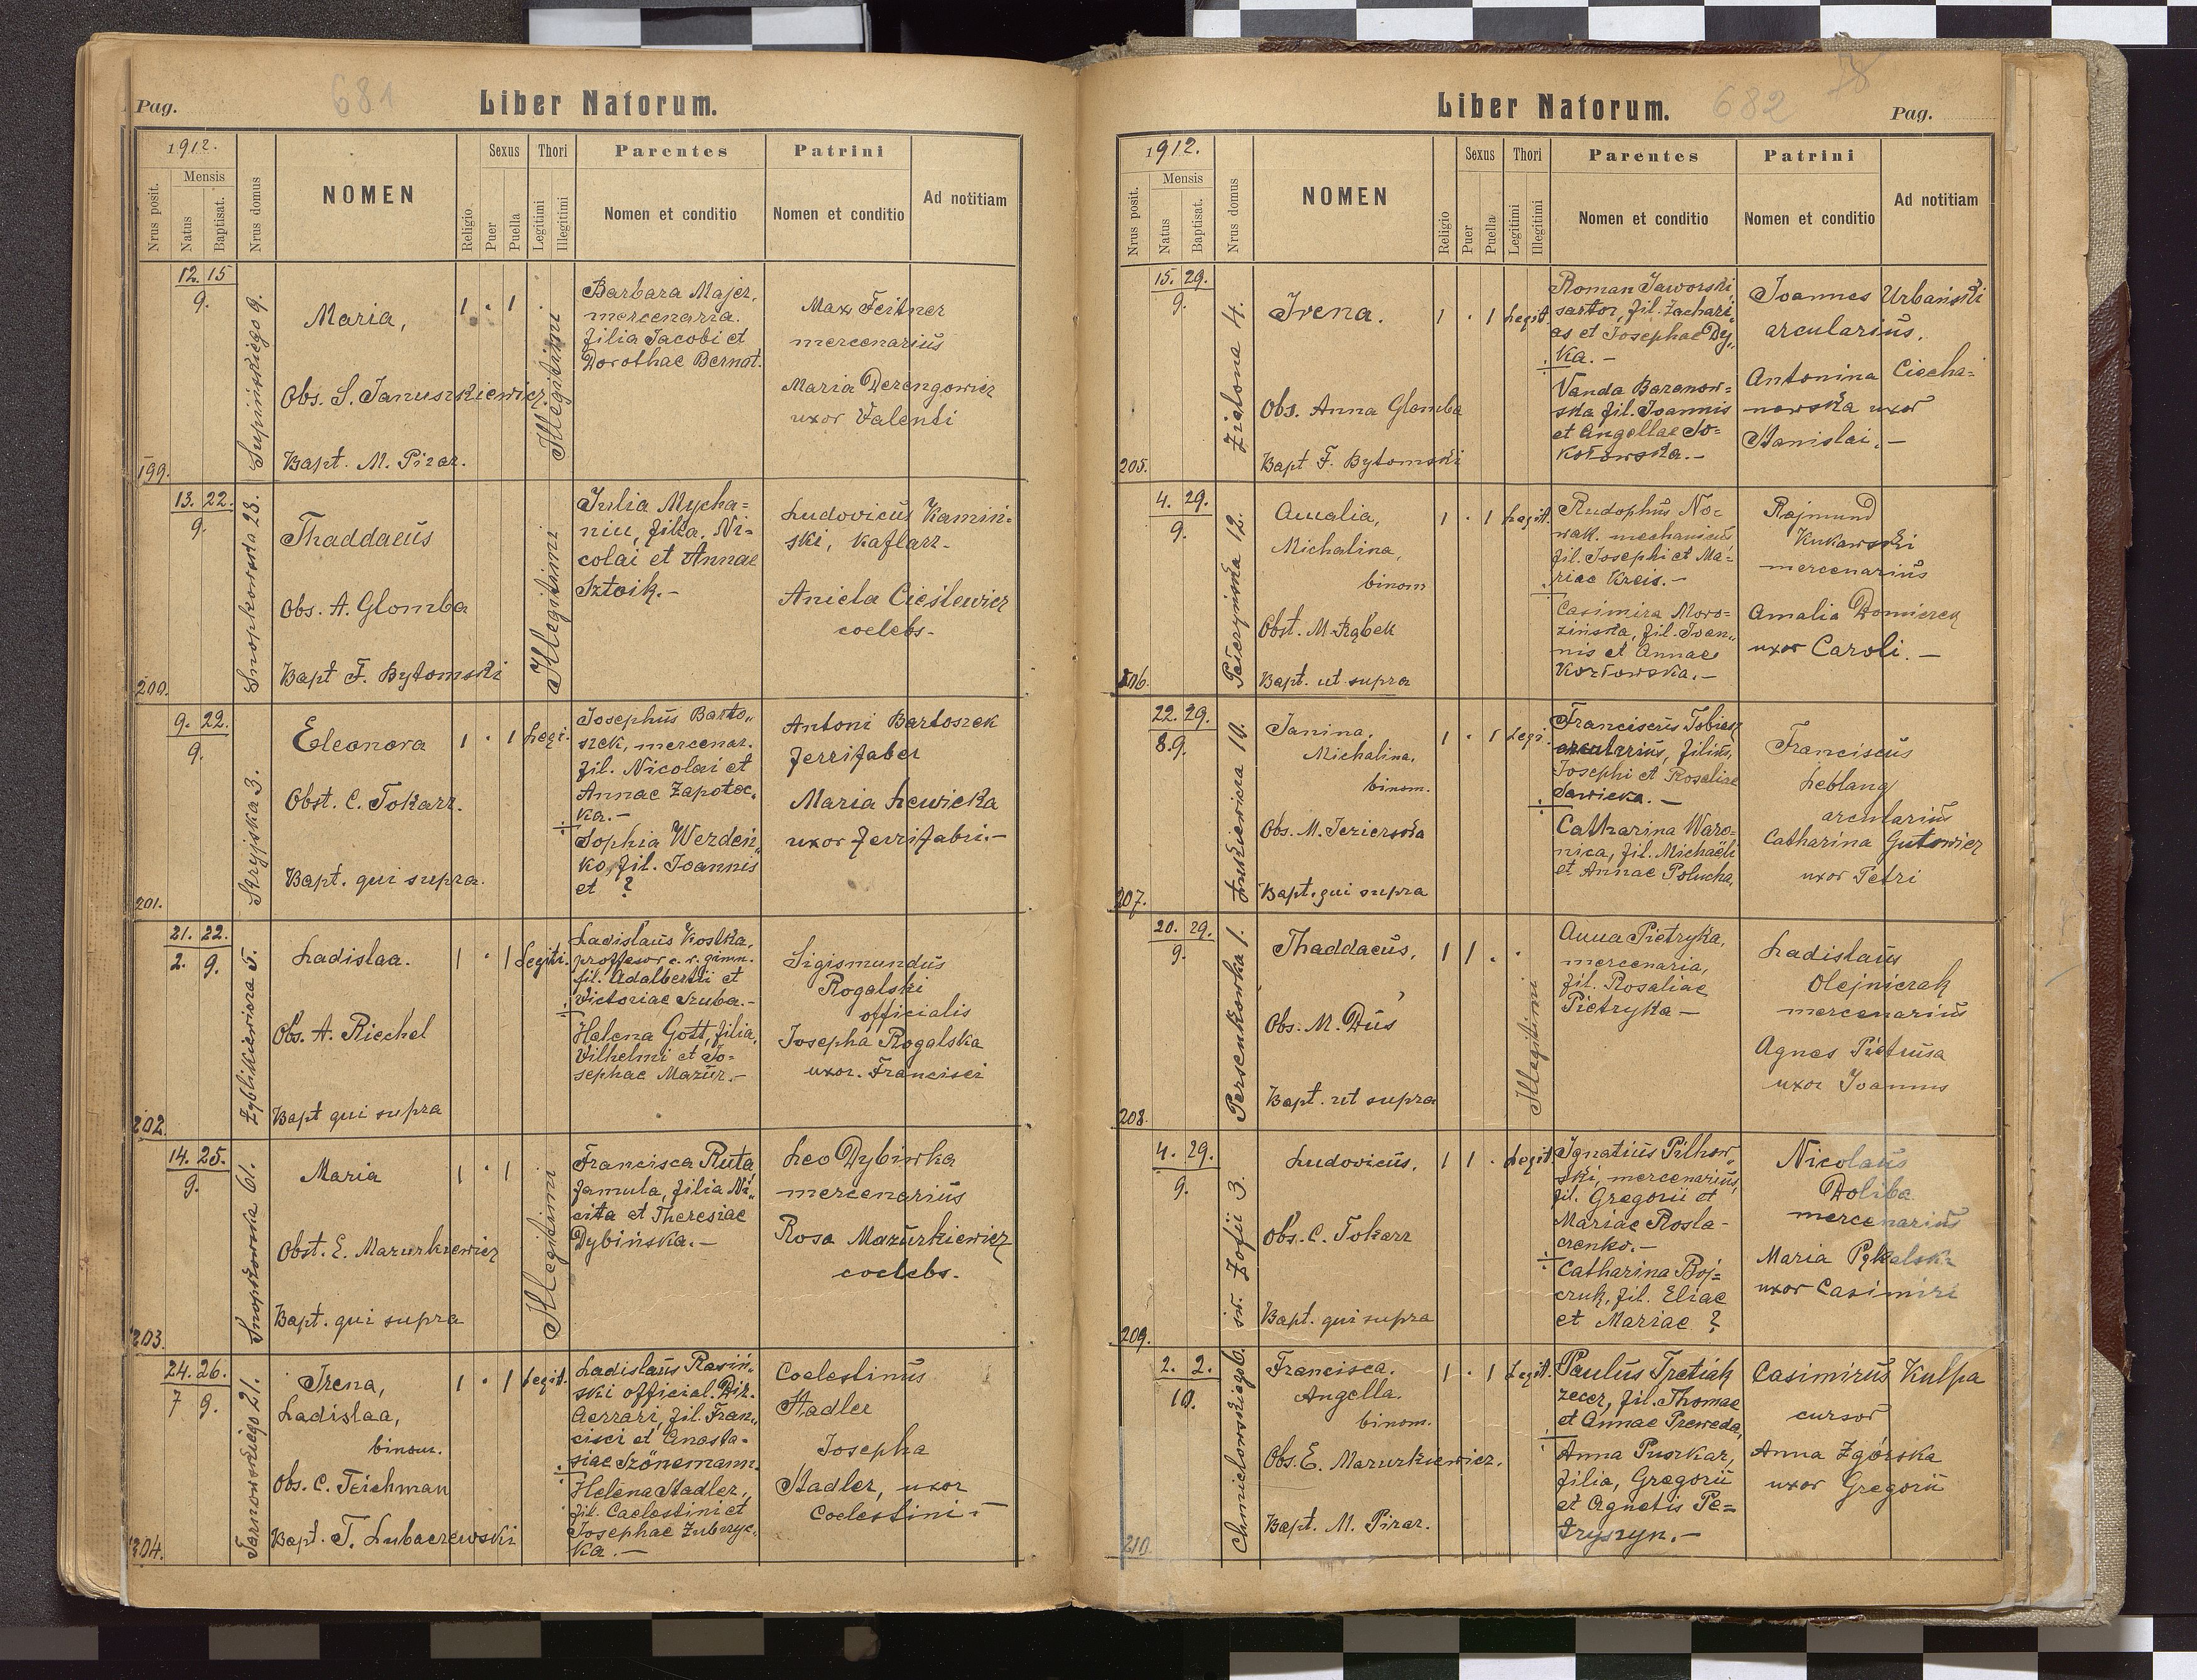 Pag.
681
Liber Natorum.
1912.
Nrus posit.
Mensis
Natus
Baptisat.
Nrus domus
NOMEN
Religio
Sexus
Puer
Puella
Thori
Legitimi
Illegitimi
Parentes
Nomen et conditio
Patrini
Nomen et conditio
Ad notitiam
199.
12. 15
9.
Supińskiego 9.
Maria,
Obs. S. Januszkiewicz.
Bapt. M. Pirar.
1 . 1 .
Illegitimi
Barbara Majer,
mercenaria.
filia Jacobi et
Dorothae Bernat.
Max Feitner
mercenariŭs
Maria Derengowicz
uxor Valenti
200.
13. 22.
9.
Snopkowska 23.
Thaddaeŭs
Obs. A. Glomba
Bapt F. Bytomski
Illegitimi
Julia Mycha=
niu, filia. Ni-
colai et Annae
Sztoik.-
Ludovicŭs Kamiń-
ski, kaflarz-
Aniela Cieślewicz
coelebs-
201.
9. 22.
9.
Stryjska 3.
Eleonora
Obst. C. Tokarz.
Bapt. qui supra.
1 . 1 Legi.
Josephŭs Barto„
szek, mercenar.
fil. Nicolai et
Annae Zapotoc„
ka.-
Sophia Werden„
ko, fil. Joannis
et ?
Antoni Bartoszek
ferrifaber
Maria Lewicka
uxor ferrifabri.-
202.
21. 22.
2. 9.
Zyblikiewicza 5.
Ladislaa.
Obs. A. Riechel
Bapt qui supra
1 . 1 Legiti.
Ladislaŭs Kostka,
proffesor c. r. gimn.
fil. Adalberti et
Victoriae Szuba.-
Helena Gott, filia,
Vilhelmi et Jo-
sephae Mazŭr.-
Sigismundŭs
Rogalski
officialis
Josepha Rogalska
uxor. Francisci
203.
14. 25.
9.
Snopkowska 61.
Maria
Obst. E. Mazurkiewicz
Bapt. qui supra
1 . 1
Illegitimi
Francisca Ruta
famula, filia Ni„
cita et Theresiae
Dybińska.-
Leo Dybiwka
mercenariŭs
Rosa Mazŭrkiewicz
coelebs.
204.
24. 26.
7 9.
Tarnowskiego 21.
Irena,
Ladislaa,
binom.
Obs. C. Teichman
Bapt. T. Lubaczewski
1 . 1 Legit.
Ladislaŭs Rasiń„
ski official. Dir.
Aerrari, fil. Fran„
cisci et Anasta-
siae Szönemann.
Helena Stadler,
fil. Caelestini et
Josephae Zubrzyc„
ka.-
Coelestinŭs
Stadler
Josepha
Stadler, uxor
Coelestini-
Liber Natorum.
682
78
Pag.
1912.
Nrus posit.
Mensis
Natus
Baptisat.
Nrus domus
NOMEN
Religio
Sexus
Puer
Puella
Thori
Legitimi
Illegitimi
Parentes
Nomen et conditio
Patrini
Nomen et conditio
Ad notitiam
205.
15. 29.
9.
Zielona 4.
Irena.
Obs. Anna Glomba
Bapt F. Bytomski
1 . 1 Legit.
Roman Jaworski,
sartor, fil. Zachari„
as et Josephae Dy„
ka.-
Vanda Baranow=
ska fil. Joannis
et Angellae So=
kołowska.-
Joannes Urbański
arculariŭs.
Antonina Ciecha=
nowska uxor
Stanislai.-
206.
4. 29.
9.
Pełczyńska 12.
Amalia,
Michalina,
binom
Obst. M. Rąbek
Bapt. ut supra
1 . 1 Legit.
Rudophŭs No-
wak. mechanicŭs
fil. Josephi et Ma-
riae Kreis.-
Casimira Moro=
zińska, fil. Joan„
nis et Annae
Kozłowska.-
Rajmund
Kukawski
mercenariŭs
Amalia Domierek
uxor Caroli.-
207.
22. 29.
8. 9.
Łukiewicza 10.
Janina,
Michalina,
binom.
Obs. M. Jezierska
Bapt. qui supra
1 . 1 Legi.
Franciscŭs Tobiasz
arculariŭs, filiŭs,
Josephi et Rosaliae
Sawicka.-
Catharina Waro=
nica, fil. Michaëli
et Annae Polucha,
Franciscŭs
Leblang
arculariŭs
Catharina Gutowicz
uxor Petri
208.
20. 29.
9.
Persenkowka 1.
Thaddaeŭs,
Obs. M. Dŭs
Bapt. ut supra
1 1 . .
Illegitimi
Anna Pietryka,
mercenaria,
fil. Rosaliae
Pietryka-
Ladislaŭs
Olejniczak
mercenariŭs
Agnes Pietrusa
uxor Joannis
209.
4. 29.
9.
św. Zofii 3.
Ludovicŭs,
Obs. C. Tokarz
Bapt. qui supra
1 1 . Legit.
Ignatiŭs Pilhow„
ski, mercenariŭs,
fil. Gregorii et
Mariae Rosla-
czenko.-
Catharina Boj=
czuk, fil. Eliae
et Mariae ?
Nicolaŭs
Doliba
mercenariŭs
Maria Pękalska
uxor Casimiri
210.
2. 2.
10.
Chmielowskiego 6.
Francisca.
Angella.
binom.
Obs. E. Mazurkiewicz.
Bapt. M. Pirar.
1 . 1 Legit.
Paulŭs Tretiak
zecer, fil. Thomae
et Annae Preweda,
Anna Puszkar,
filia, Gregorii
et Agnetis Pe=
tryszyn.-
Casimirŭs Kulpa
cursor
Anna Zgórska
uxor Gregorii